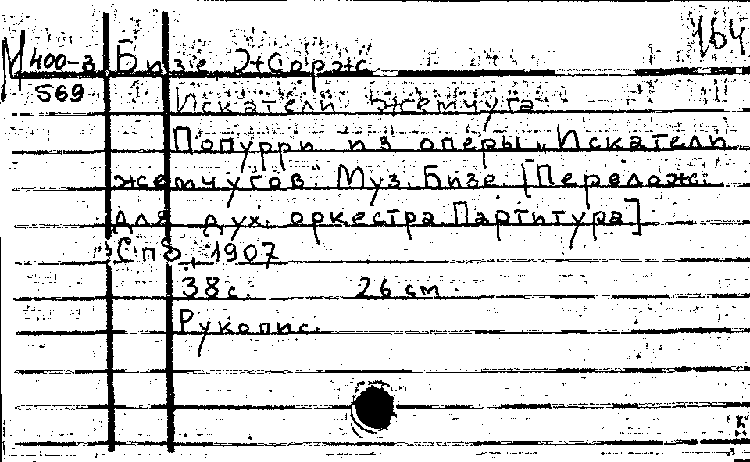 164
М 400-3 Бизе, Жорж
569
Искатели жемчуга
Попурри из оперы „Искатели
жемчугов". Муз. Бизе. [Перелож.
для дух. оркестра. Партитура]
Спб, 1907
38 с. 26 cm.
Рукопис.